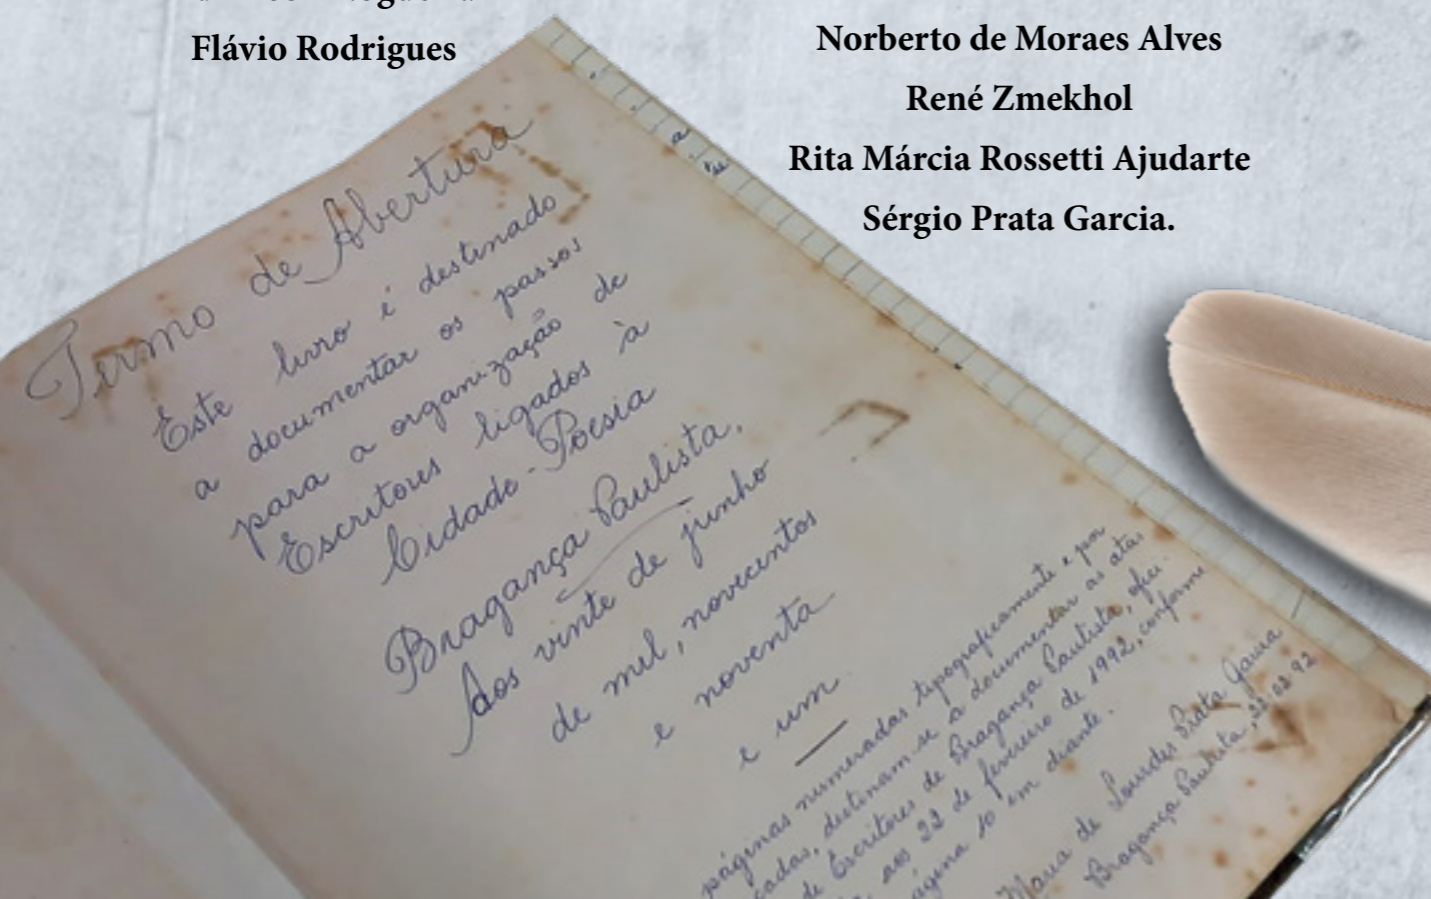 Flávio Rodrigues
Norberto de Moraes Alves
René Zmekhol
Rita Márcia Rossetti Ajudarte
Sérgio Prata Garcia.
Termo de Abertura
Este livro é destinado
a documentar os passos
para a organização de
Escritores ligados à
Cidade-Poesia
Bragança Paulista,
Aos vinte de junho
de mil, novecentos
e noventa
e um.
páginas numeradas tipograficamente e por
destinam-se a documentar as atas
de Escritores de Bragança Paulista, ofici-
aos 22 de fevereiro de 1992, conforme
10 em diante.
Maria de Lourdes Prata Garcia
Bragança Paulista, 22.02.92